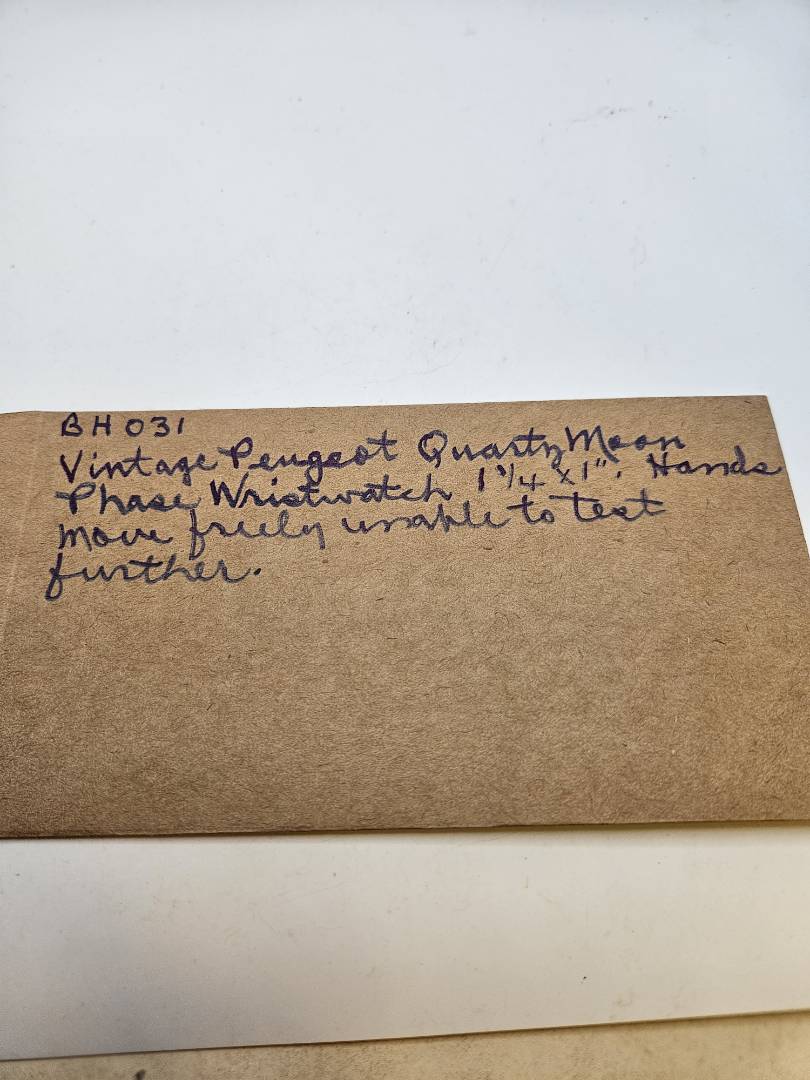 BH 031
Vintage Peugeot Quartz Moon
Phase Wristwatch 1 1/4 x 1". Hands
move freely unable to test
further.